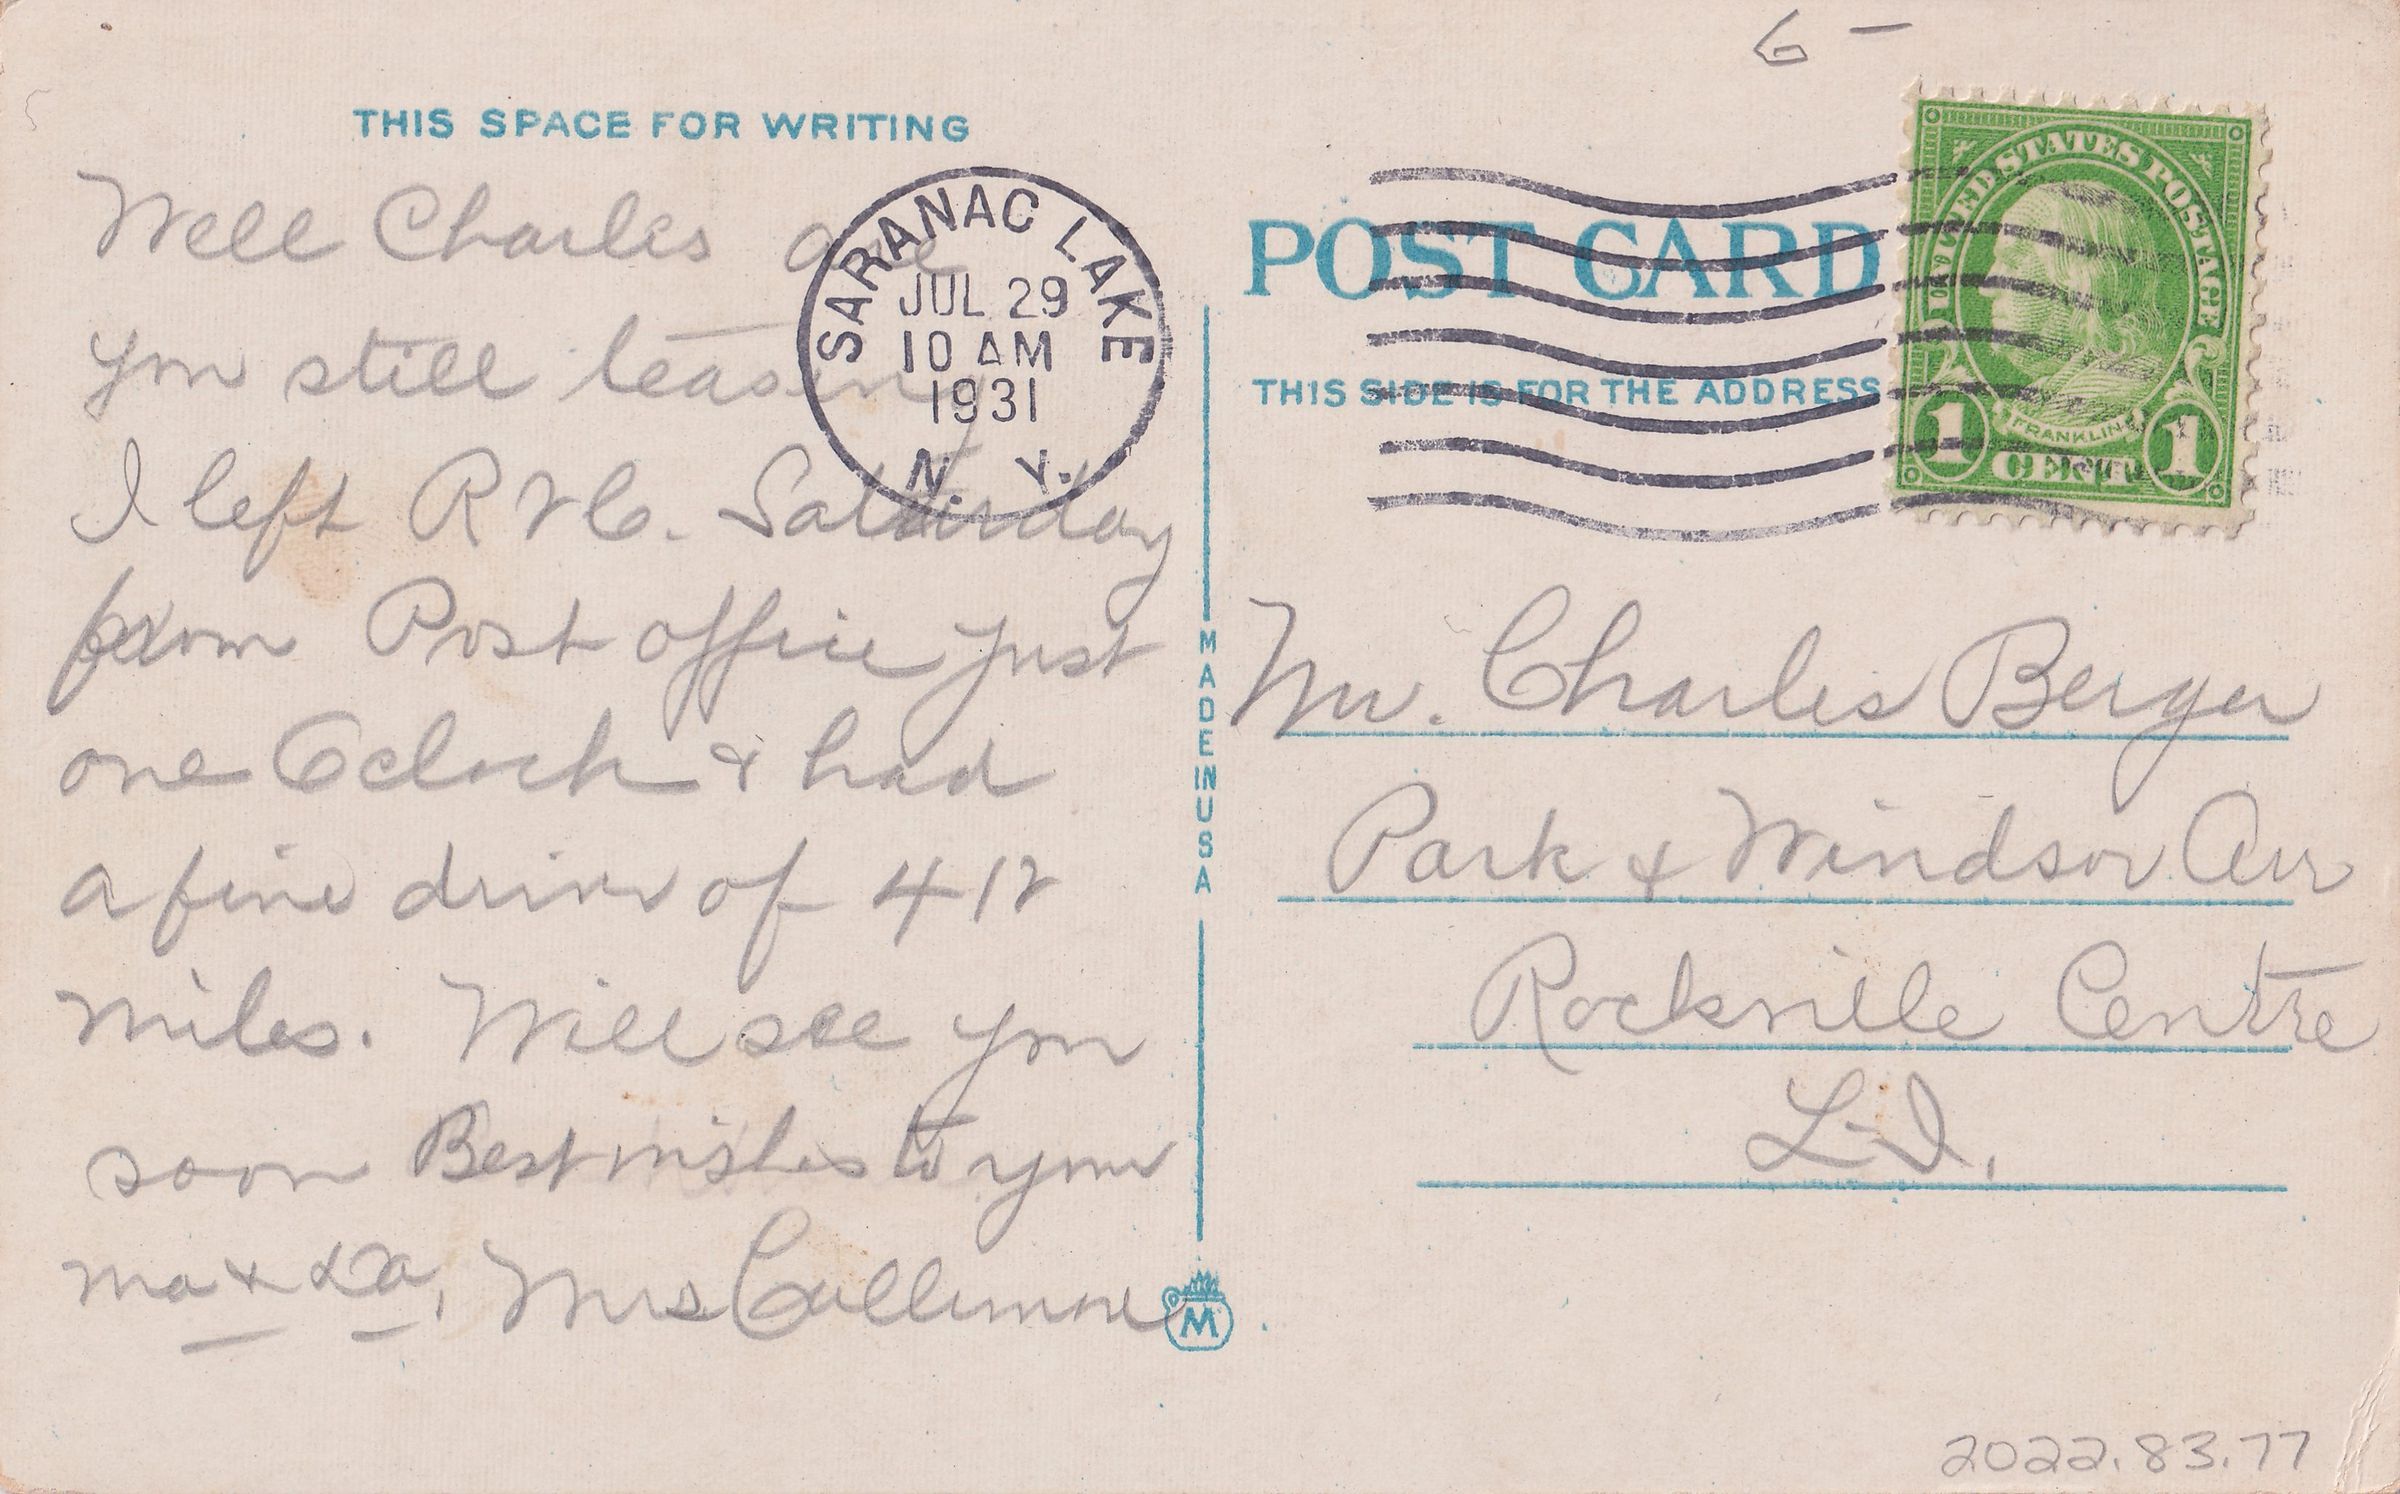 6 —
THIS SPACE FOR WRITING
Well Charles are
you still teasing
I left R V C. Saturday
from Post office just
one Oclock & had
a fine drive of 412
miles. Will see you
soon Best wishes to your
ma & Da, Mrs Cullimore
SARANAC LAKE
JUL 29
10 AM
1931
N. Y.
MADE IN USA
M
POST CARD
THIS SIDE IS FOR THE ADDRESS
UNITED STATES POSTAGE
FRANKLIN
1 CENT 1
Mr. Charles Berger
Park & Windsor Ave
Rockville Centre
L-I.
2022.83.77